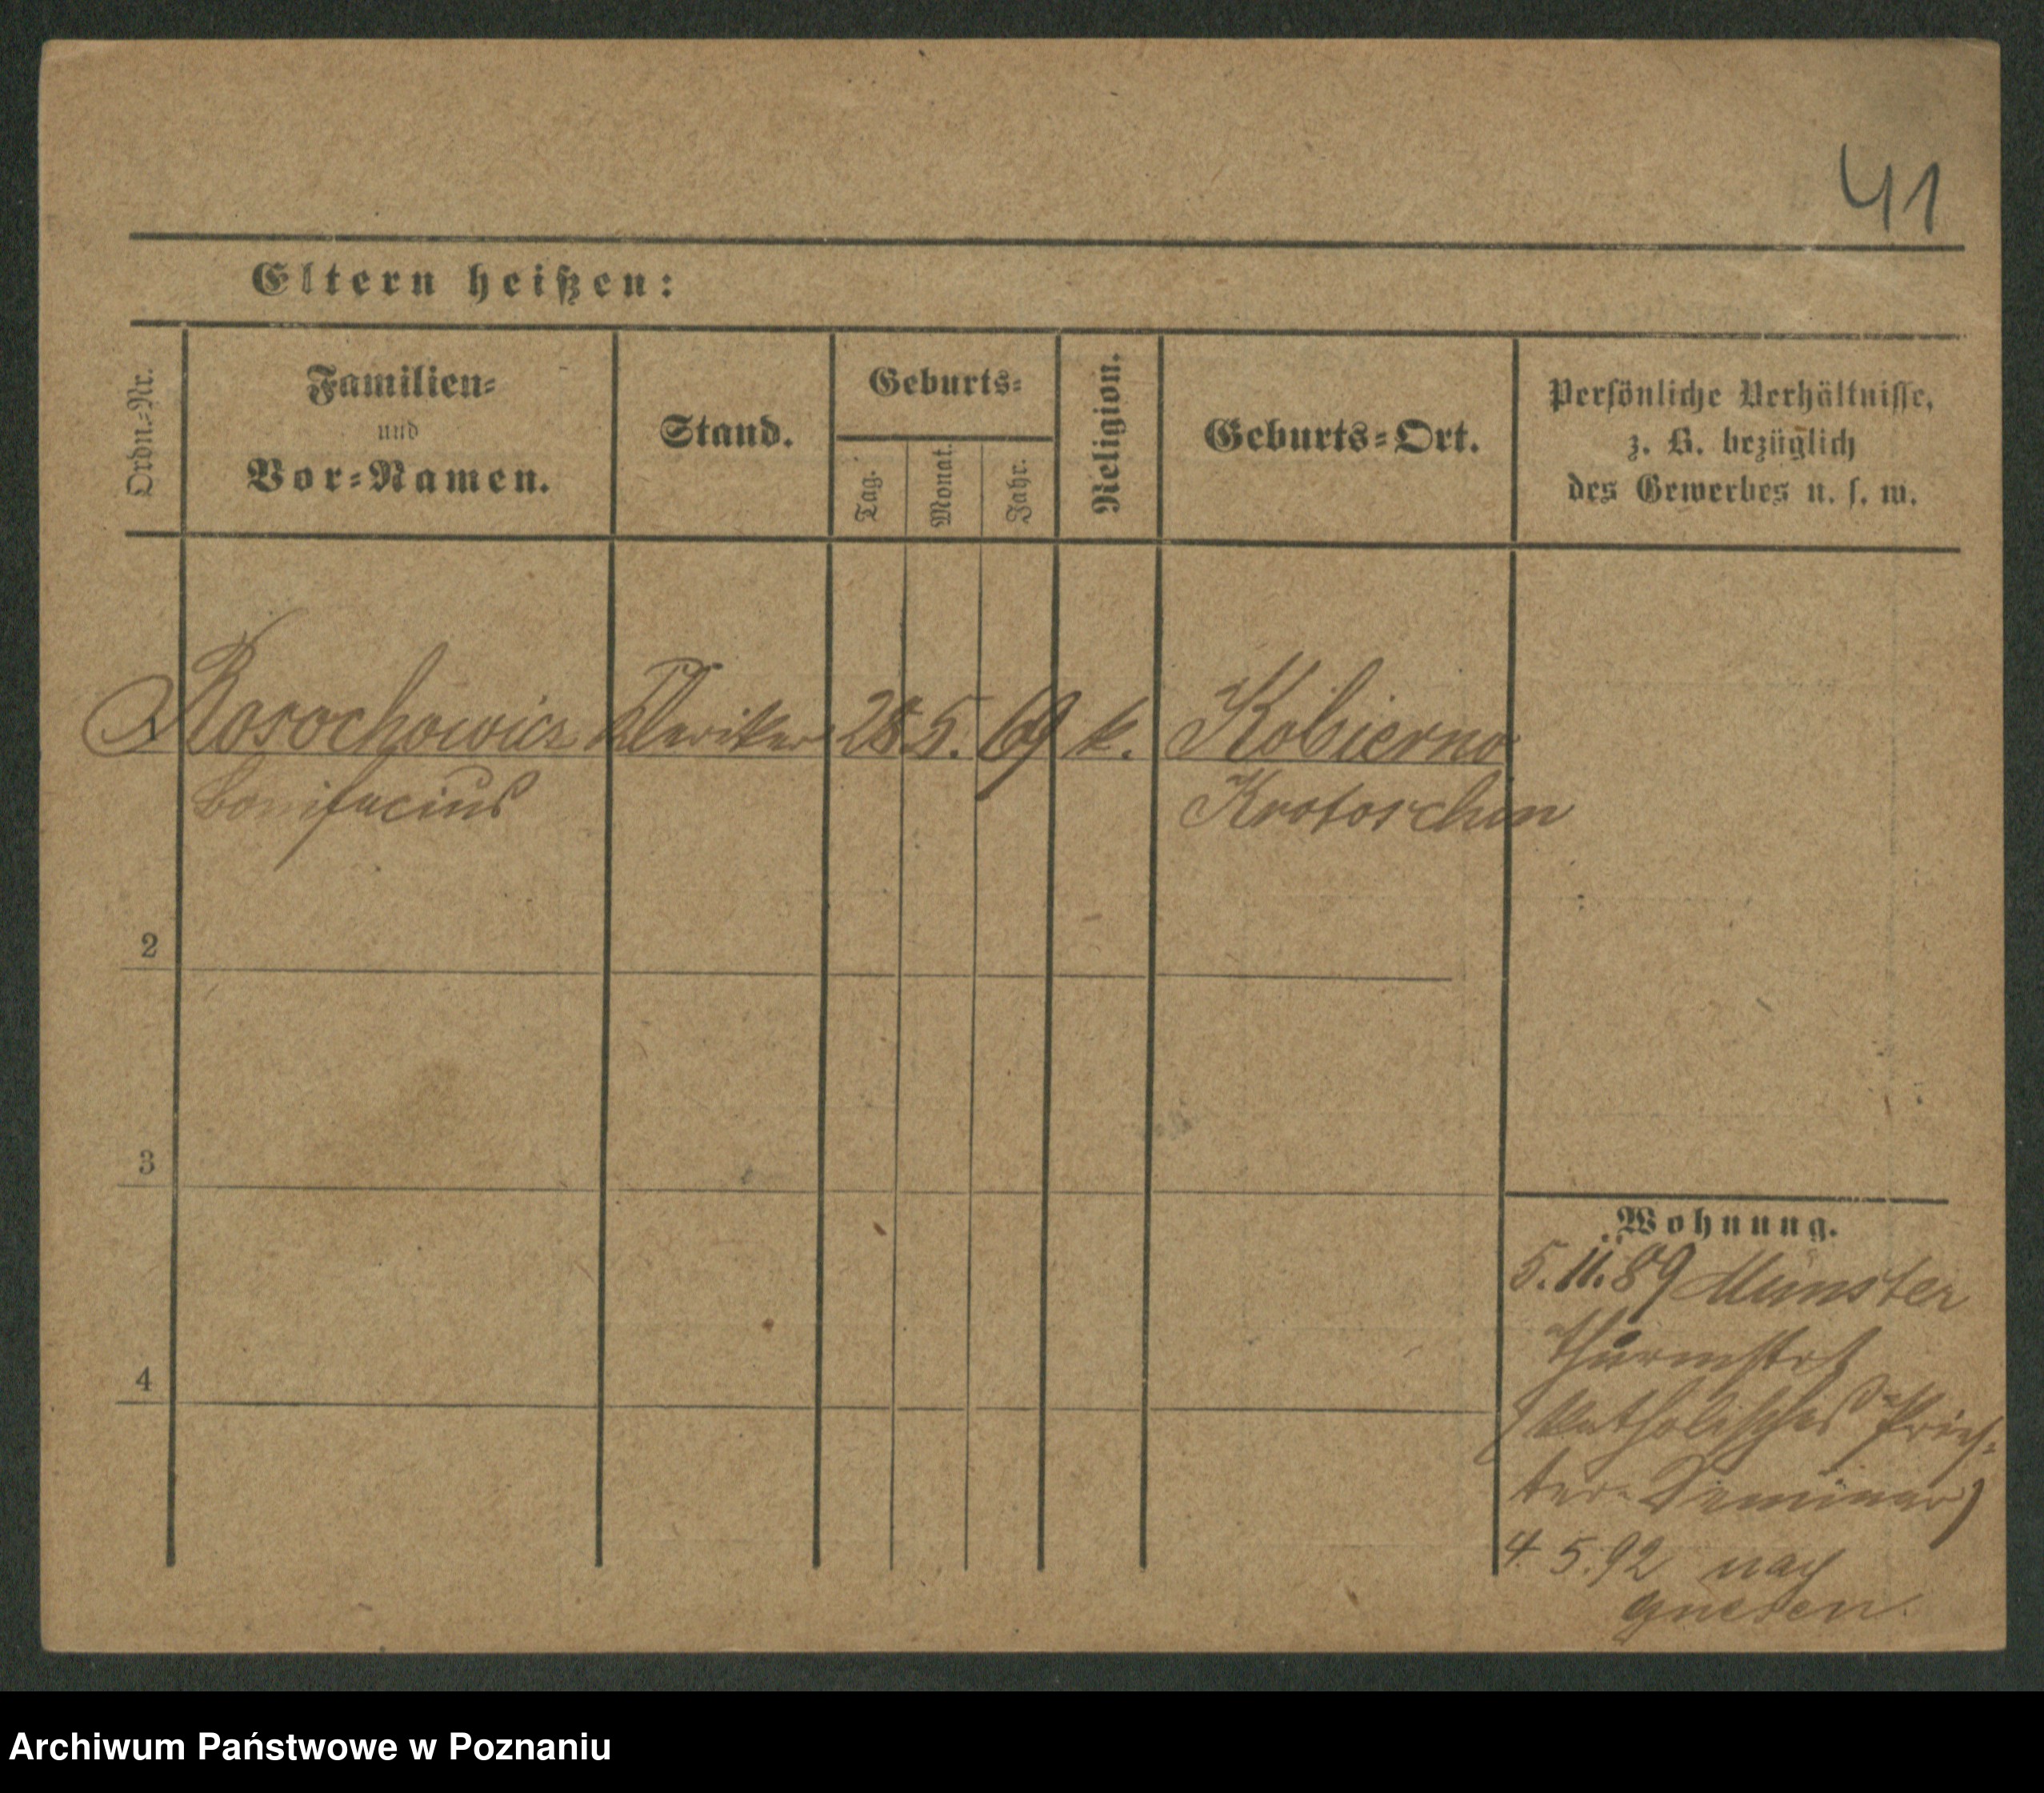 41
Eltern heißen:
Ordn.=Nr.
Familien=
und
Vor=Namen.
Stand.
Geburts=
Tag.
Monat.
Jahr.
Religion.
Geburts=Ort.
Persönliche Verhältnisse,
z. B. bezüglich
des Gewerbes u. s. w.
Rosochowicz Kleriker 28 5. 69 k. Kobierno
Bonifacius Krotoschin
2
3
4
Wohnung.
5. 11. 89 Münster
Thurmstr
(Katholisches Pries-
ter-Seminar)
4 5. 92 nach
Gnesen.
Archiwum Państwowe w Poznaniu